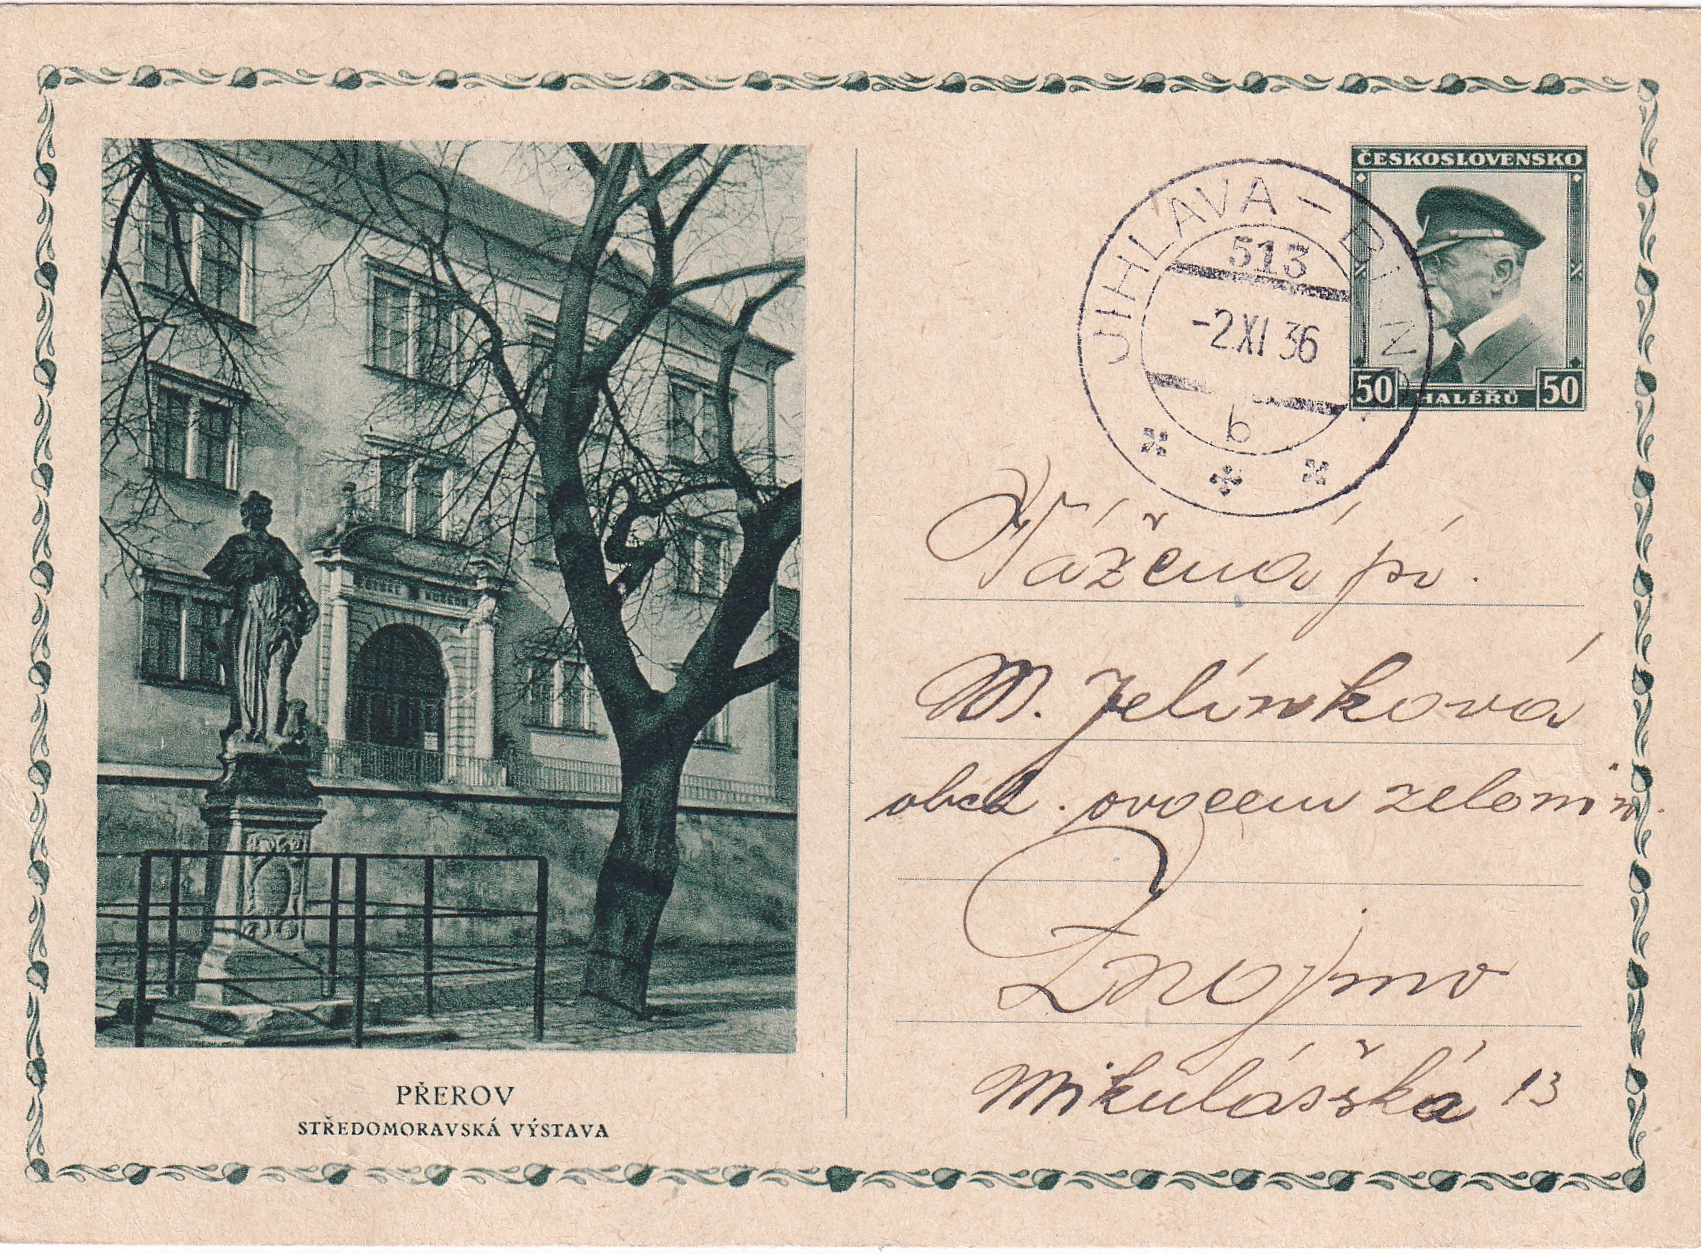 ČESKOSLOVENSKO
50 HALÉŘŮ 50
JIHLAVA - BRNO
513
-2.XI 36
b
Vážená pí.
M. Jelínková
obch. ovocem zelenin.
Znojmo
Mikulášská 13
PŘEROV
STŘEDOMORAVSKÁ VÝSTAVA